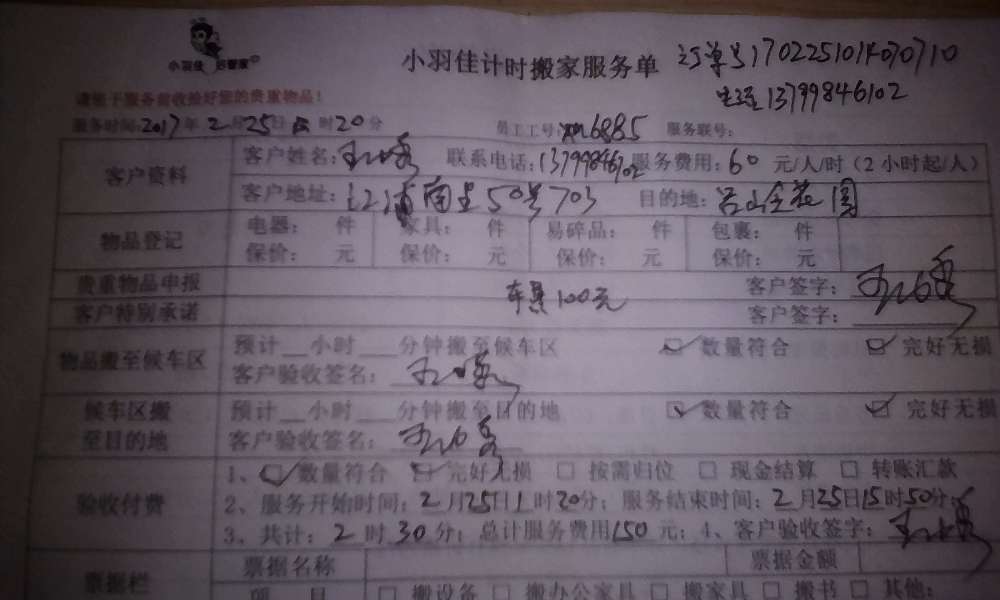 小羽佳 好管家
小羽佳计时搬家服务单 订单号1702251014070710
13799846102
请您于服务前收拾好您的贵重物品！
服务时间:2017年2月25日 时20分 员工工号: 6885 服务联号:
客户资料 客户姓名: 联系电话:13799846102 服务费用:60元/人/时（2小时起/人）
客户地址:江浦南里50号703 目的地:吕山金花园
物品登记 电器: 件 家具: 件 易碎品: 件 包裹: 件
保价: 元 保价: 元 保价: 元 保价: 元
贵重物品申报 客户签字:
车费100元
客户特别承诺 客户签字:
物品搬至候车区 预计__小时___分钟搬至候车区 数量符合 完好无损
客户验收签名:
候车区搬至目的地 预计__小时___分钟搬至目的地 数量符合 完好无损
客户验收签名:
验收付费 1、数量符合 完好无损 □ 按需归位 □ 现金结算 □ 转账汇款
2、服务开始时间:2月25日1时20分; 服务结束时间:2月25日15时50分
3、共计:2时30分; 总计服务费用150元; 4、客户验收签字:
票据栏 票据名称 票据金额
项 目 □ 搬设备 □ 搬办公家具 □ 搬家具 □ 搬书 □ 其他: